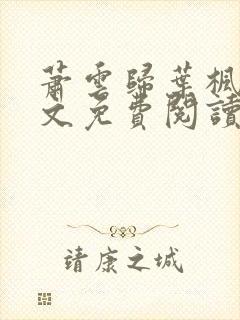 蕭雲歸葉楓
文免費閱讀
靖康之城